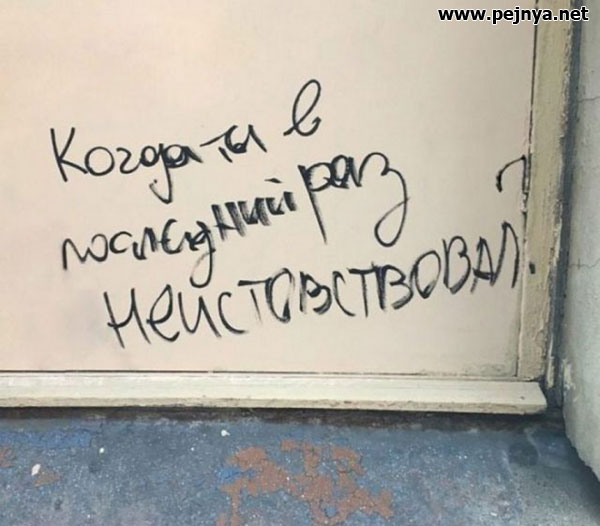 www.pejnya.net
Когда ты в
последний раз
неистовствовал?